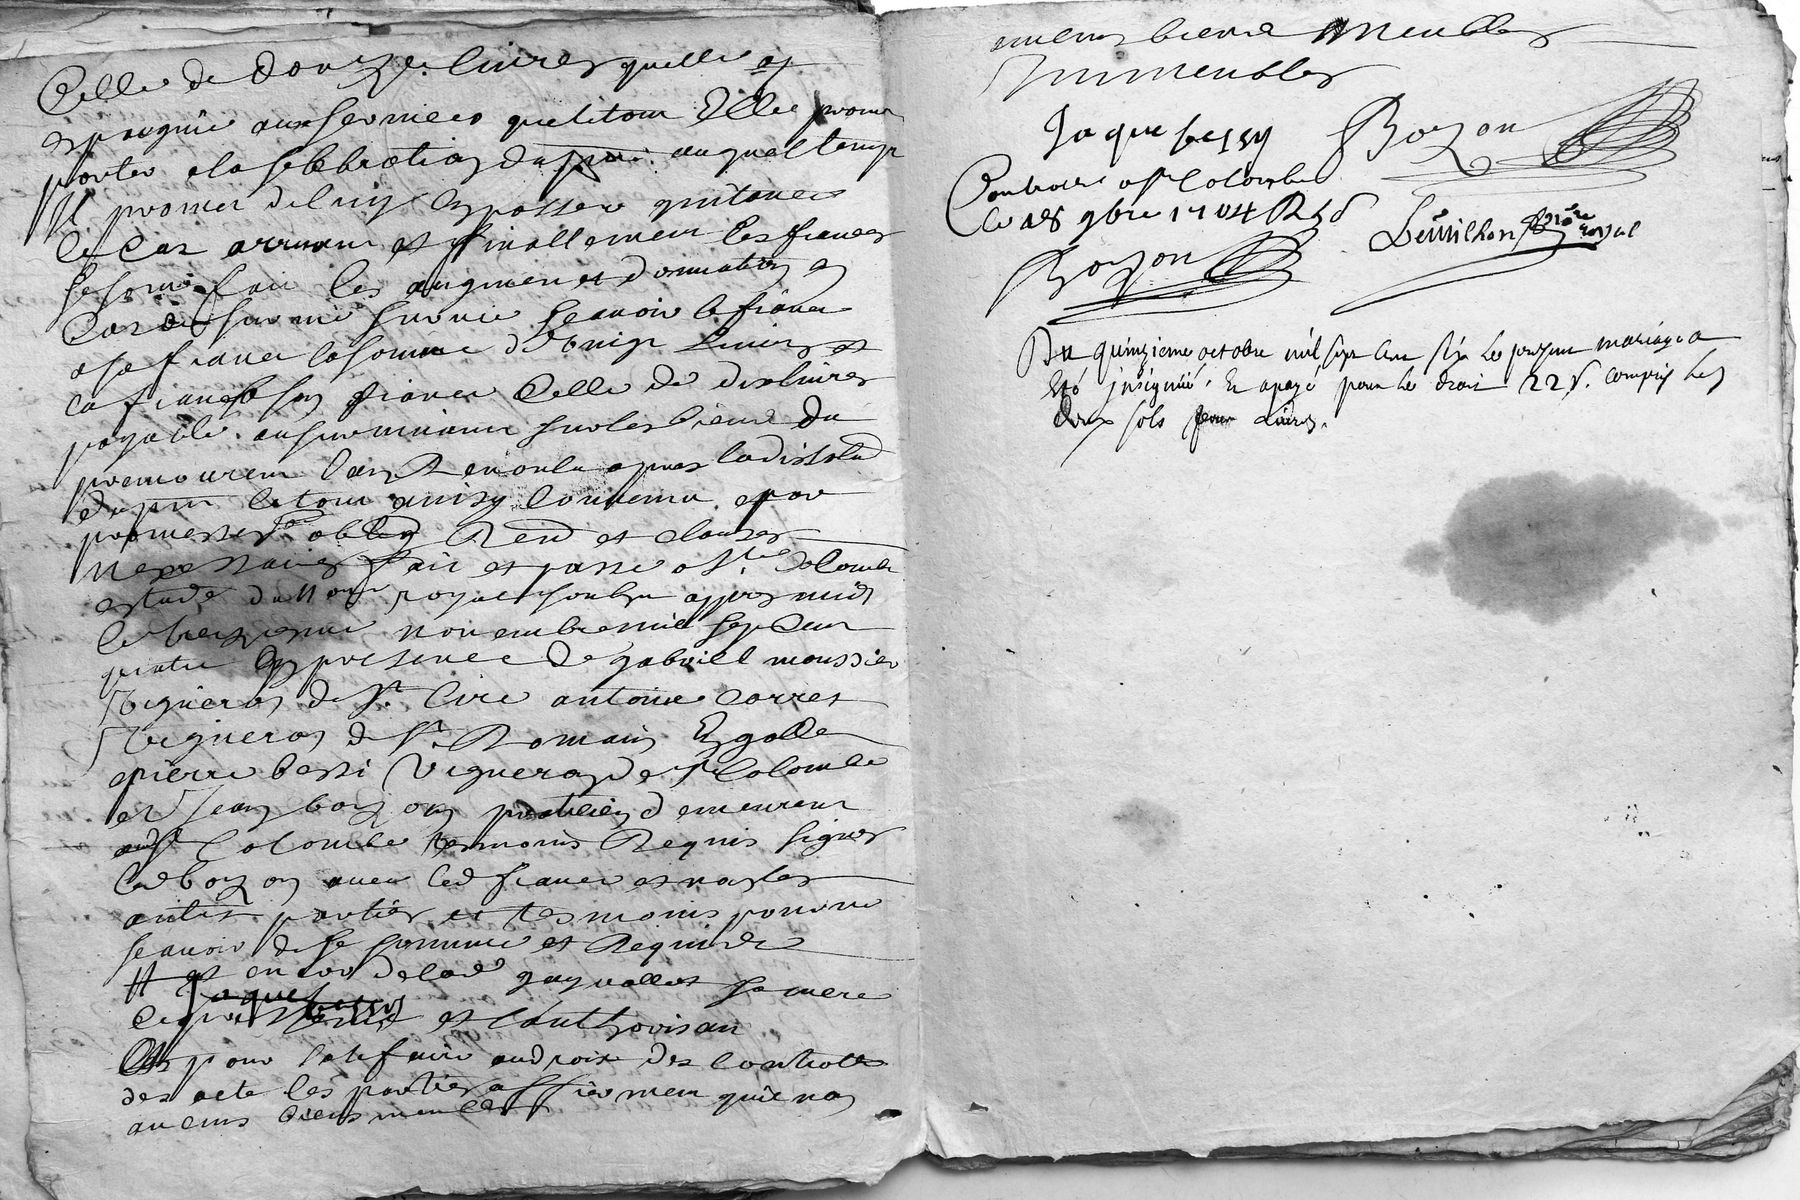 Celle de douze livres quelle a
espargnée aux services quelitour Elle promet
porter a la selebration dupnt auquel temps
Il promet de luy en passer quitance
le cas arrivant et finallement les fiances
se sont fait les augment et donnation en
cas de survie scavoir le fiance
a sa fiancee la somme de vingt livres et
la fiancee a son fiance celle de dix livres
payable au survivant sur les biens du
premourant lan Revoulu apres la dissolu
dupnt le tout ainsy convenu par
promesses oblig Ren et clauses
necessaires fait et passé a Ste Colombe
estude du no royal soubzne appres midy
le treizieme novembre mil sept cent
quatre En presence de gabriel moussier
Vigneron de St. Cire antoine Corret
Vigneron de St. Romain En galle
pierre bessi Vigneron de St Colombe
et Jean boyron praticien demeurant
aud St Colombe tesmoins Requis signes
led boyron avec led fiance et non les
autres parties et tesmoins pour ne
scavoir de ce somme et Requis
Jaques bessy
et lauthorisan
Et pour satisfaire au droit des controlle
des acte les parties affirment quil non
aucuns biens meubles
aucuns biens meubles
Immeubles
Jaque bessy Boyron
Controlle a St Colombe
le 18 9bre 1704 R
Boyron
Leuilhon nore royal
Du quinzieme octobre mil sept cent six le present mariage a
Esté insignué, Et apayé pour le droit 22 s. compris les
deux sols pour Livres.